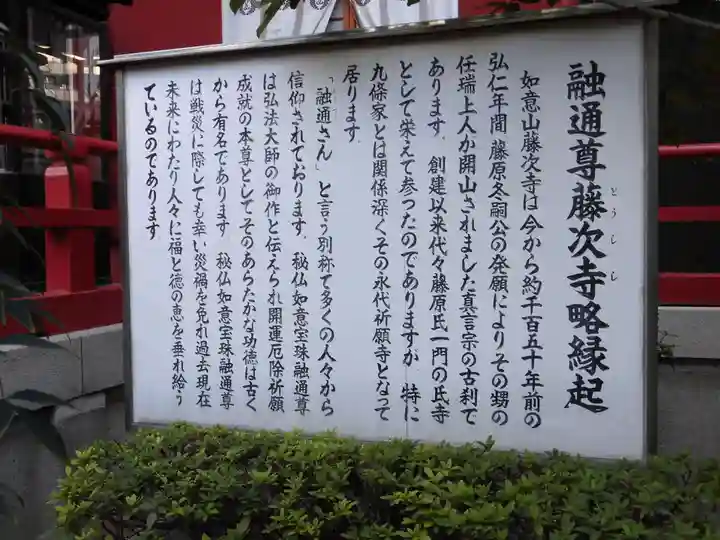 融通尊藤次寺略縁起
とうじし
如意山藤次寺は今から約千百五十年前の
弘仁年間 藤原冬嗣公の発願によりその甥の
任瑞上人が開山されました真言宗の古刹で
あります．創建以来代々藤原氏一門の氏寺
として栄えて参ったのでありますが 特に
九條家とは関係深くその永代祈願寺となって
居ります．
「融通さん」と言う別称で多くの人々から
信仰されております．秘仏如意宝珠融通尊
は弘法大師の御作と伝えられ開運厄除祈願
成就の本尊としてそのあらたかな功徳は古く
から有名であります 秘仏如意宝珠融通尊
は戦災に際しても幸い災禍を免れ過去現在
未来にわたり人々に福と徳の恵を垂れ給う
ているのであります